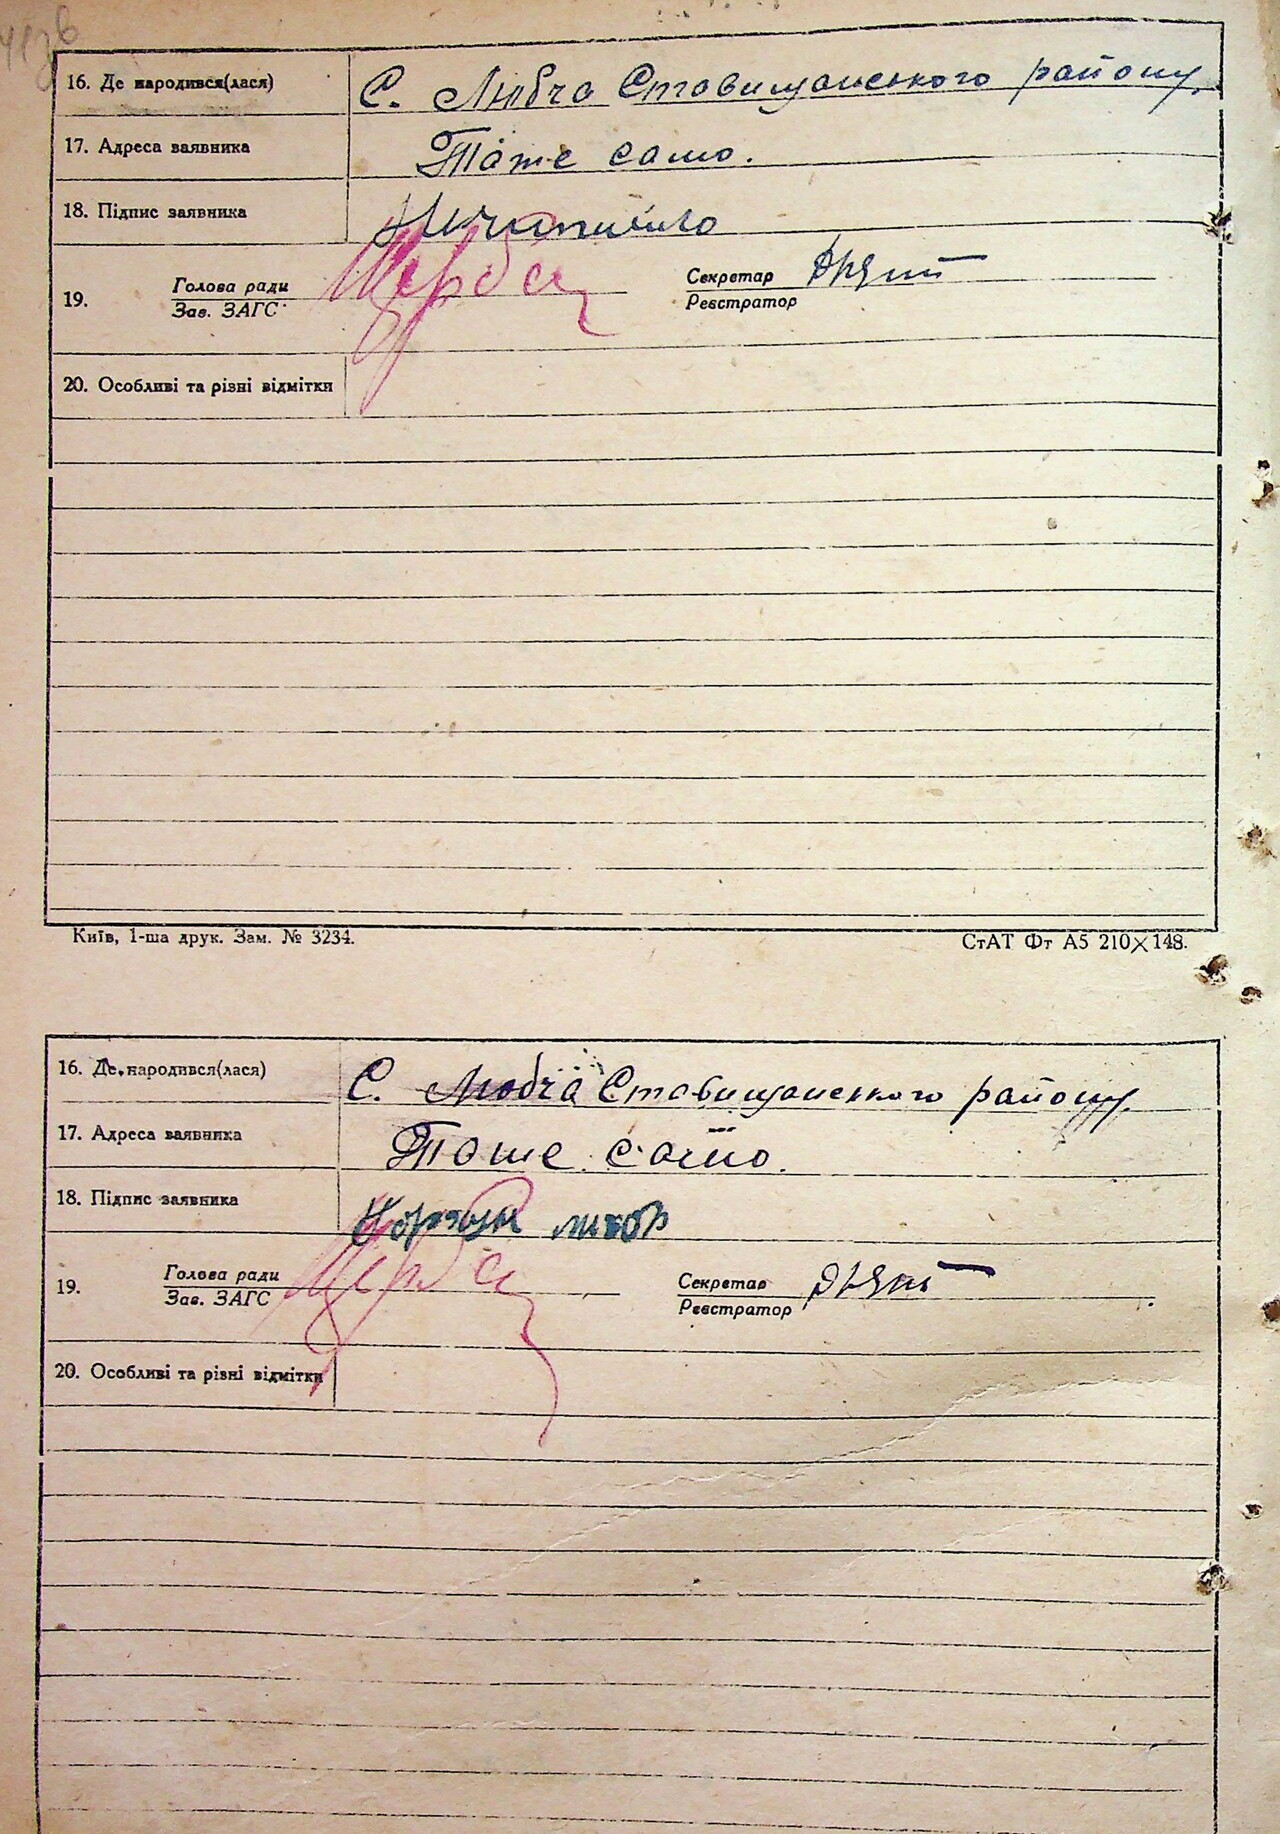 16. Де народився(лася) С. Любча Ставищанського району.
17. Адреса заявника Таже само.
18. Підпис заявника
19. Голова ради Щерба Секретар
Зав. ЗАГС Реєстратор
20. Особливі та різні відмітки
Київ, 1-ша друк. Зам. № 3234. СтАТ Фт А5 210×148.
16. Де народився(лася) С. Любча Ставищанського району.
17. Адреса заявника Таше само.
18. Підпис заявника
19. Голова ради Щерба Секретар
Зав. ЗАГС Реєстратор
20. Особливі та різні відмітки